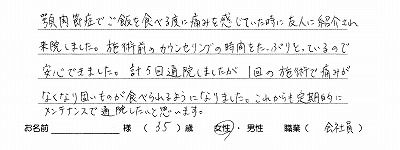 顎関節症でご飯を食べる度に痛みを感じていた時に友人に紹介され
来院しました。施術前のカウンセリングの時間をたっぷりとっているので
安心できました。計5回通院しましたが1回の施術で痛みが
なくなり固いものが食べられるようになりました。これからも定期的に
メンテナンスで通院したいと思います。
お名前 様 (35)歳 女性・男性 職業(会社員)